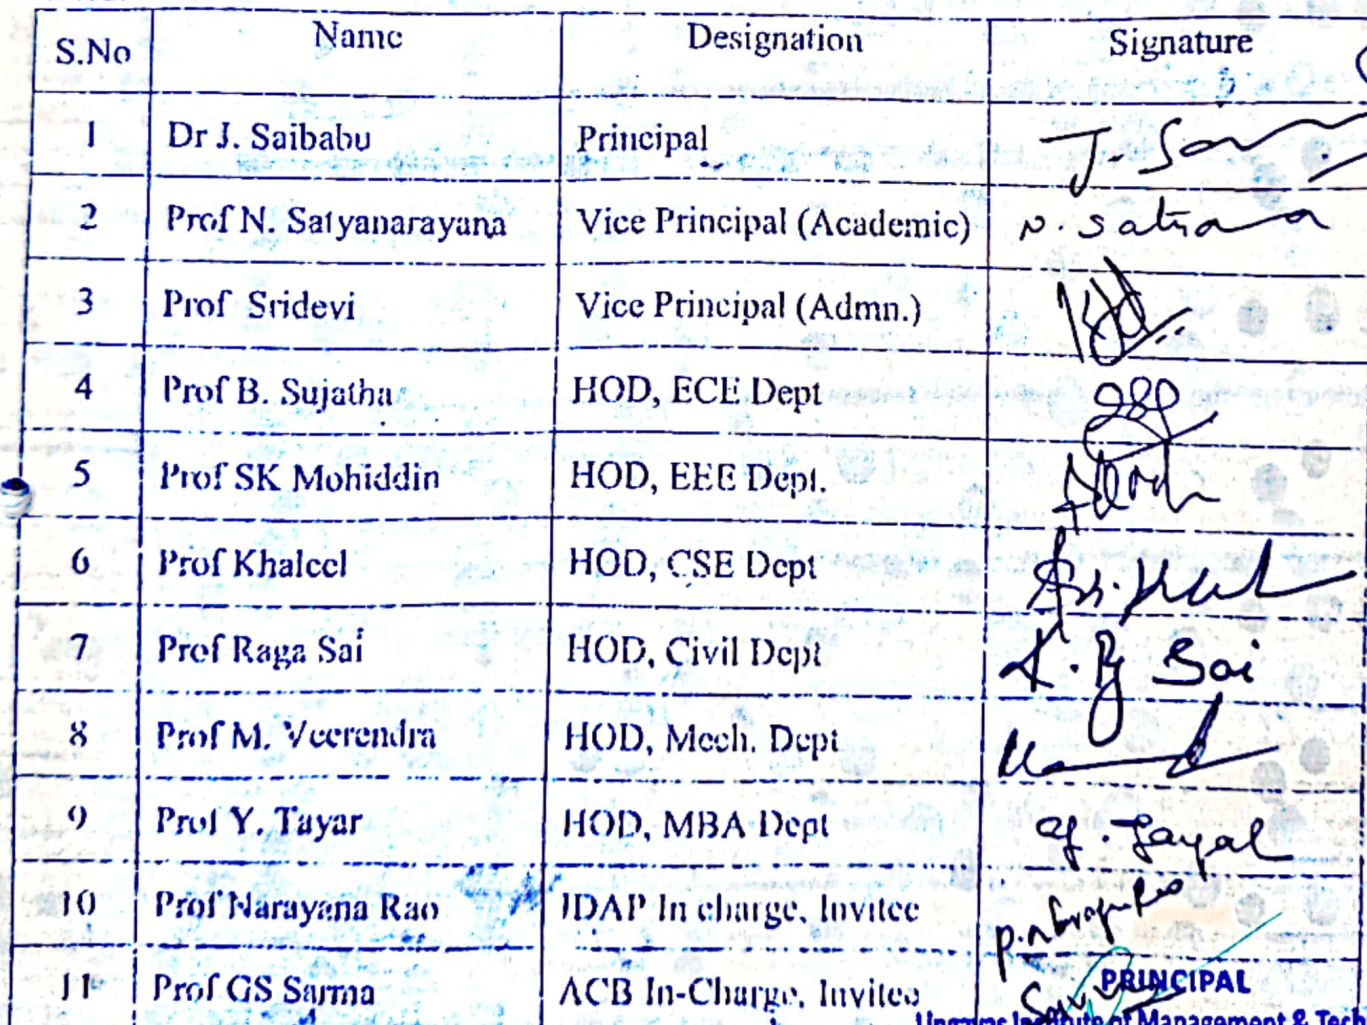 S.No Name Designation Signature
1 Dr J. Saibabu Principal J. Sai
2 Prof N. Satyanarayana Vice Principal (Academic) N. Satya
3 Prof Sridevi Vice Principal (Admn.)
4 Prof B. Sujatha HOD, ECE Dept
5 Prof SK Mohiddin HOD, EEE Dept.
6 Prof Khaleel HOD, CSE Dept
7 Prof Raga Sai HOD, Civil Dept K. Sai
8 Prof M. Veerendra HOD, Mech. Dept
9 Prof Y. Tayar HOD, MBA Dept
10 Prof Narayana Rao IDAP In charge, Invitee
11 Prof GS Sarma ACB In-Charge, Invitee
PRINCIPAL
Institute of Management & Tech